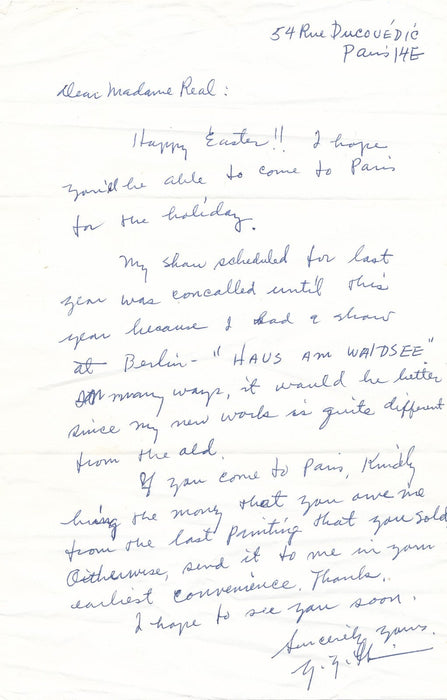 54 Rue Ducouédic
Paris 14E
Dear Madame Real:
Happy Easter!! I hope
you'd be able to come to Paris
for the holiday.
My show scheduled for last
year was concalled until this
year because I had a show
at Berlin - "HAUS AM WALDSEE"
In many ways, it would be better
since my new work is quite different
from the old.
If you come to Paris, Kindly
bring the money that you owe me
from the last printing that you sold
Oitherwise, send it to me in your
earliest convenience. Thanks,
I hope to see you soon.
Sincerely yours.